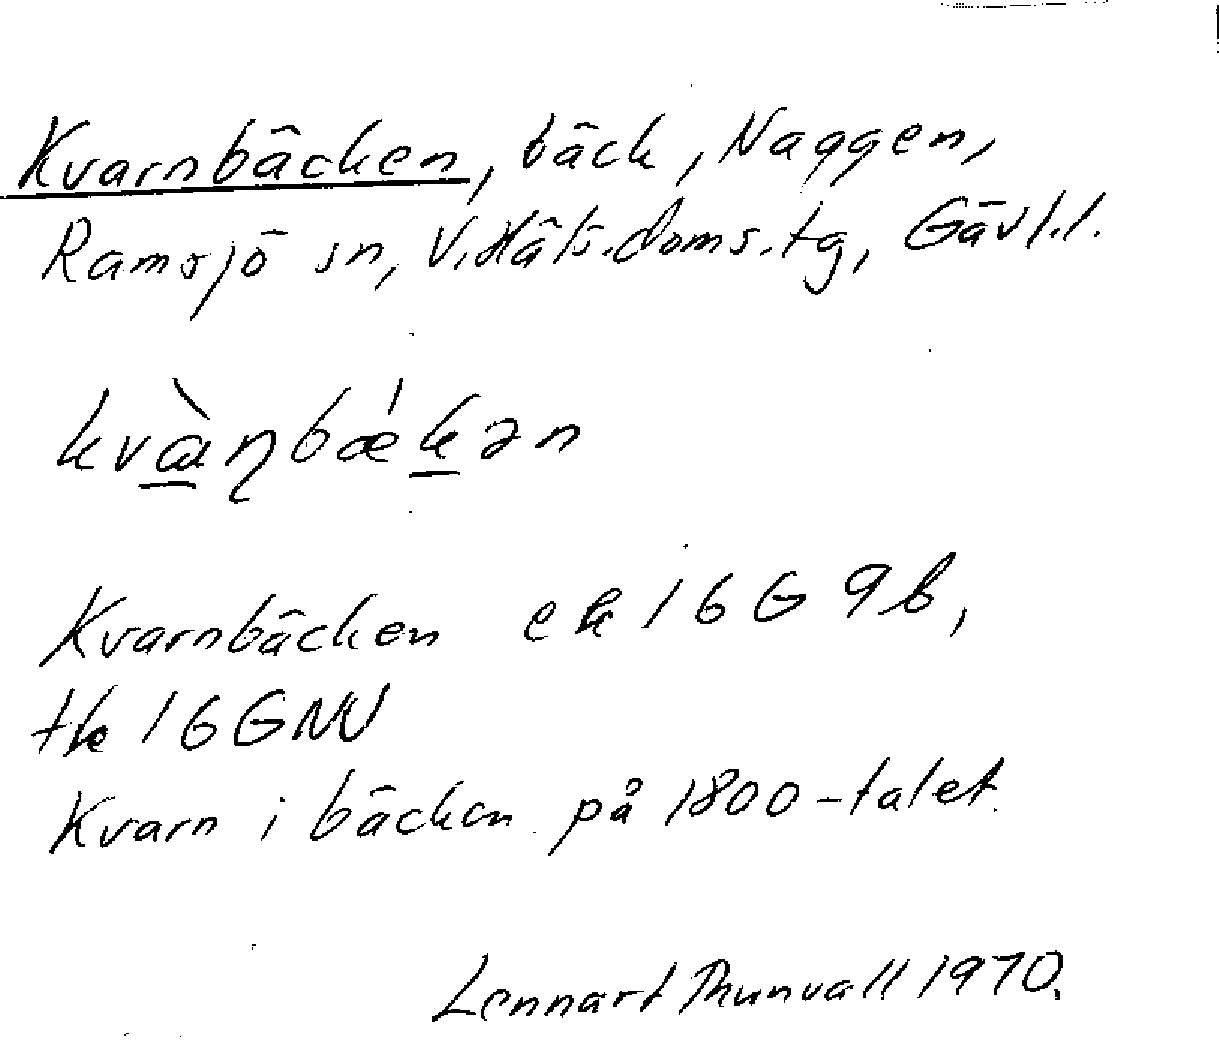 Kvarnbäcken, bäck, Naggen,
Ramsjö sn, V. Häls. doms. tg, Gävl. l.
kvàɳbǽkən
Kvarnbäcken ek 16 G 9b,
tk 16 G NV
Kvarn i bäcken på 1800-talet.
Lennart Thunvall 1970.